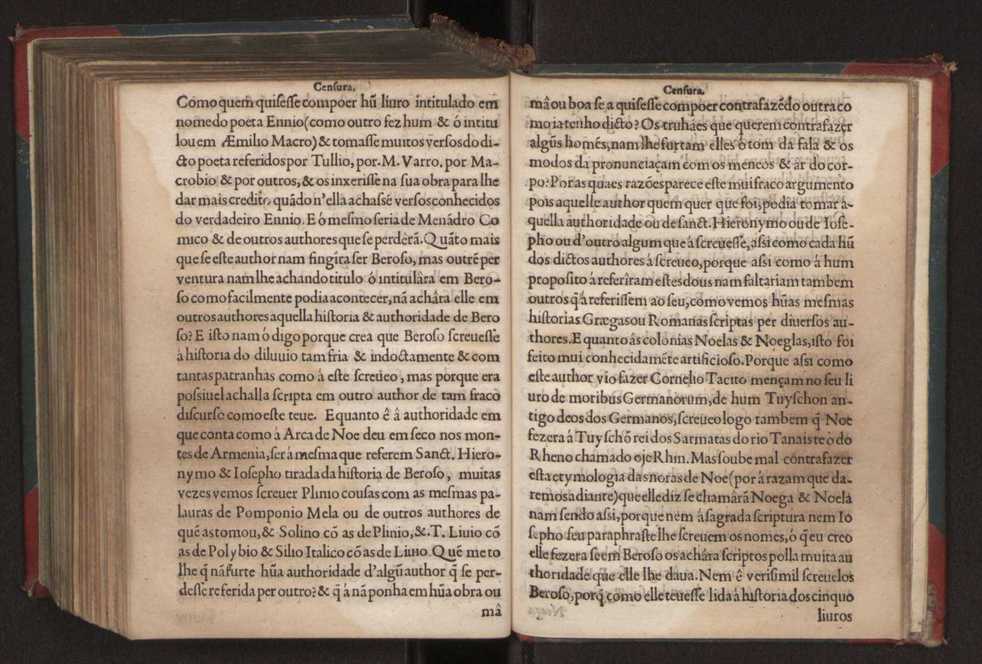 Censura.
Como quem quisesse compoer hũ liuro intitulado em
nome do poeta Ennio (como outro fez hum & ó intitu
lou em Æmilio Macro) & tomasse muitos versos do di-
cto poeta referidos por Tullio, por. M. Varro. por Ma-
crobio & por outros, & os inxerisse na sua obra para lhe
dar mais credito quãdo n'ella achassé versos conhecidos
do verdadeiro Ennio. E ó mesmo seria de Menãdro Co
mico & de outros authores que se perderã. Quãto mais
que se este author nam fingira ser Beroso, mas outrẽ per
ventura nam lhe achando titulo ó intitulâra em Bero-
so como facilmente podia acontecer, nã achâra elle em
outros authores aquella historia & authoridade de Bero
so? E isto nam ó digo porque crea que Beroso screuesse
â historia do diluuio tam fria & indoctamente & com
tantas patranhas como á este screueo, mas porque era
possiuel achalla scripta em outro author de tam fraco
discurso como este teue. Equanto ê â authoridade em
que conta como â Arca de Noe deu em seco nos mon-
tes de Armenia, ser â mesma que referem Sanct. Hiero-
nymo & Iosepho tirada da historia de Beroso, muitas
vezes vemos screuer Plinio cousas com as mesmas pa-
lauras de Pomponio Mela ou de outros authores de
quẽ as tomou, & Solino cõ as de Plinio, &. T. Liuio cõ
as de Polybio & Silio Italico cõ as de Liuio. Quẽ me to
lhe q̃ nã furte hũa authoridade d'algũ author q̃ se per-
desse referida per outro? & q̃ â nã ponha em hũa obra ou
mâ
Censura.
mâ ou boa se a quisesse compoer contrafazẽdo outra co
mo ia tenho dicto? Os truhães que querem contrafazer
algũs homẽs, nam lhe furtam elles ó tom da fala & os
modos da pronunciaçam com os meneos & ar do cor-
po? Por as quaes razões parece este mui fraco argumento
pois aquelle author quem quer que foi, podia tomar â-
quella authoridade ou de sanct. Hieronymo ou de Iose-
pho ou d'outro algum que â screuesse, assi como cada hũ
dos dictos authores â screueo, porque assi como â hum
proposito â referiram estes dous nam faltariam tambem
outros q̃ â referissem ao seu, como vemos hũas mesmas
historias Græegas ou Romanas scriptas per diuersos au-
thores. E quanto âs colonias Noelas & Noeglas, isto foi
feito mui conhecidamẽte artificioso. Porque assi como
este author vio fazer Cornelio Tacito mençam no seu li
uro de moribus Germanorum, de hum Tuyschon an-
tigo deos dos Germanos, screueo logo tambem q̃ Noe
fezera â Tuyschõ rei dos Sarmatas do rio Tanais te o do
Rheno chamado oje Rhin. Mas soube mal contrafazer
esta etymologia das noras de Noe (por â razam que da-
remos adiante) que elle diz se chamarã Noega & Noela
nam sendo assi, porque nem â sagrada scriptura nem Io
sepho seu paraphraste lhe screuem os nomes, ó q̃ eu creo
elle fezera se em Beroso os achâra scriptos polla muita au
thoridade que elle lhe daua. Nem ê verisimil screuelos
Beroso, porq̃ como elle teuesse lida â historia dos cinquo
liuros